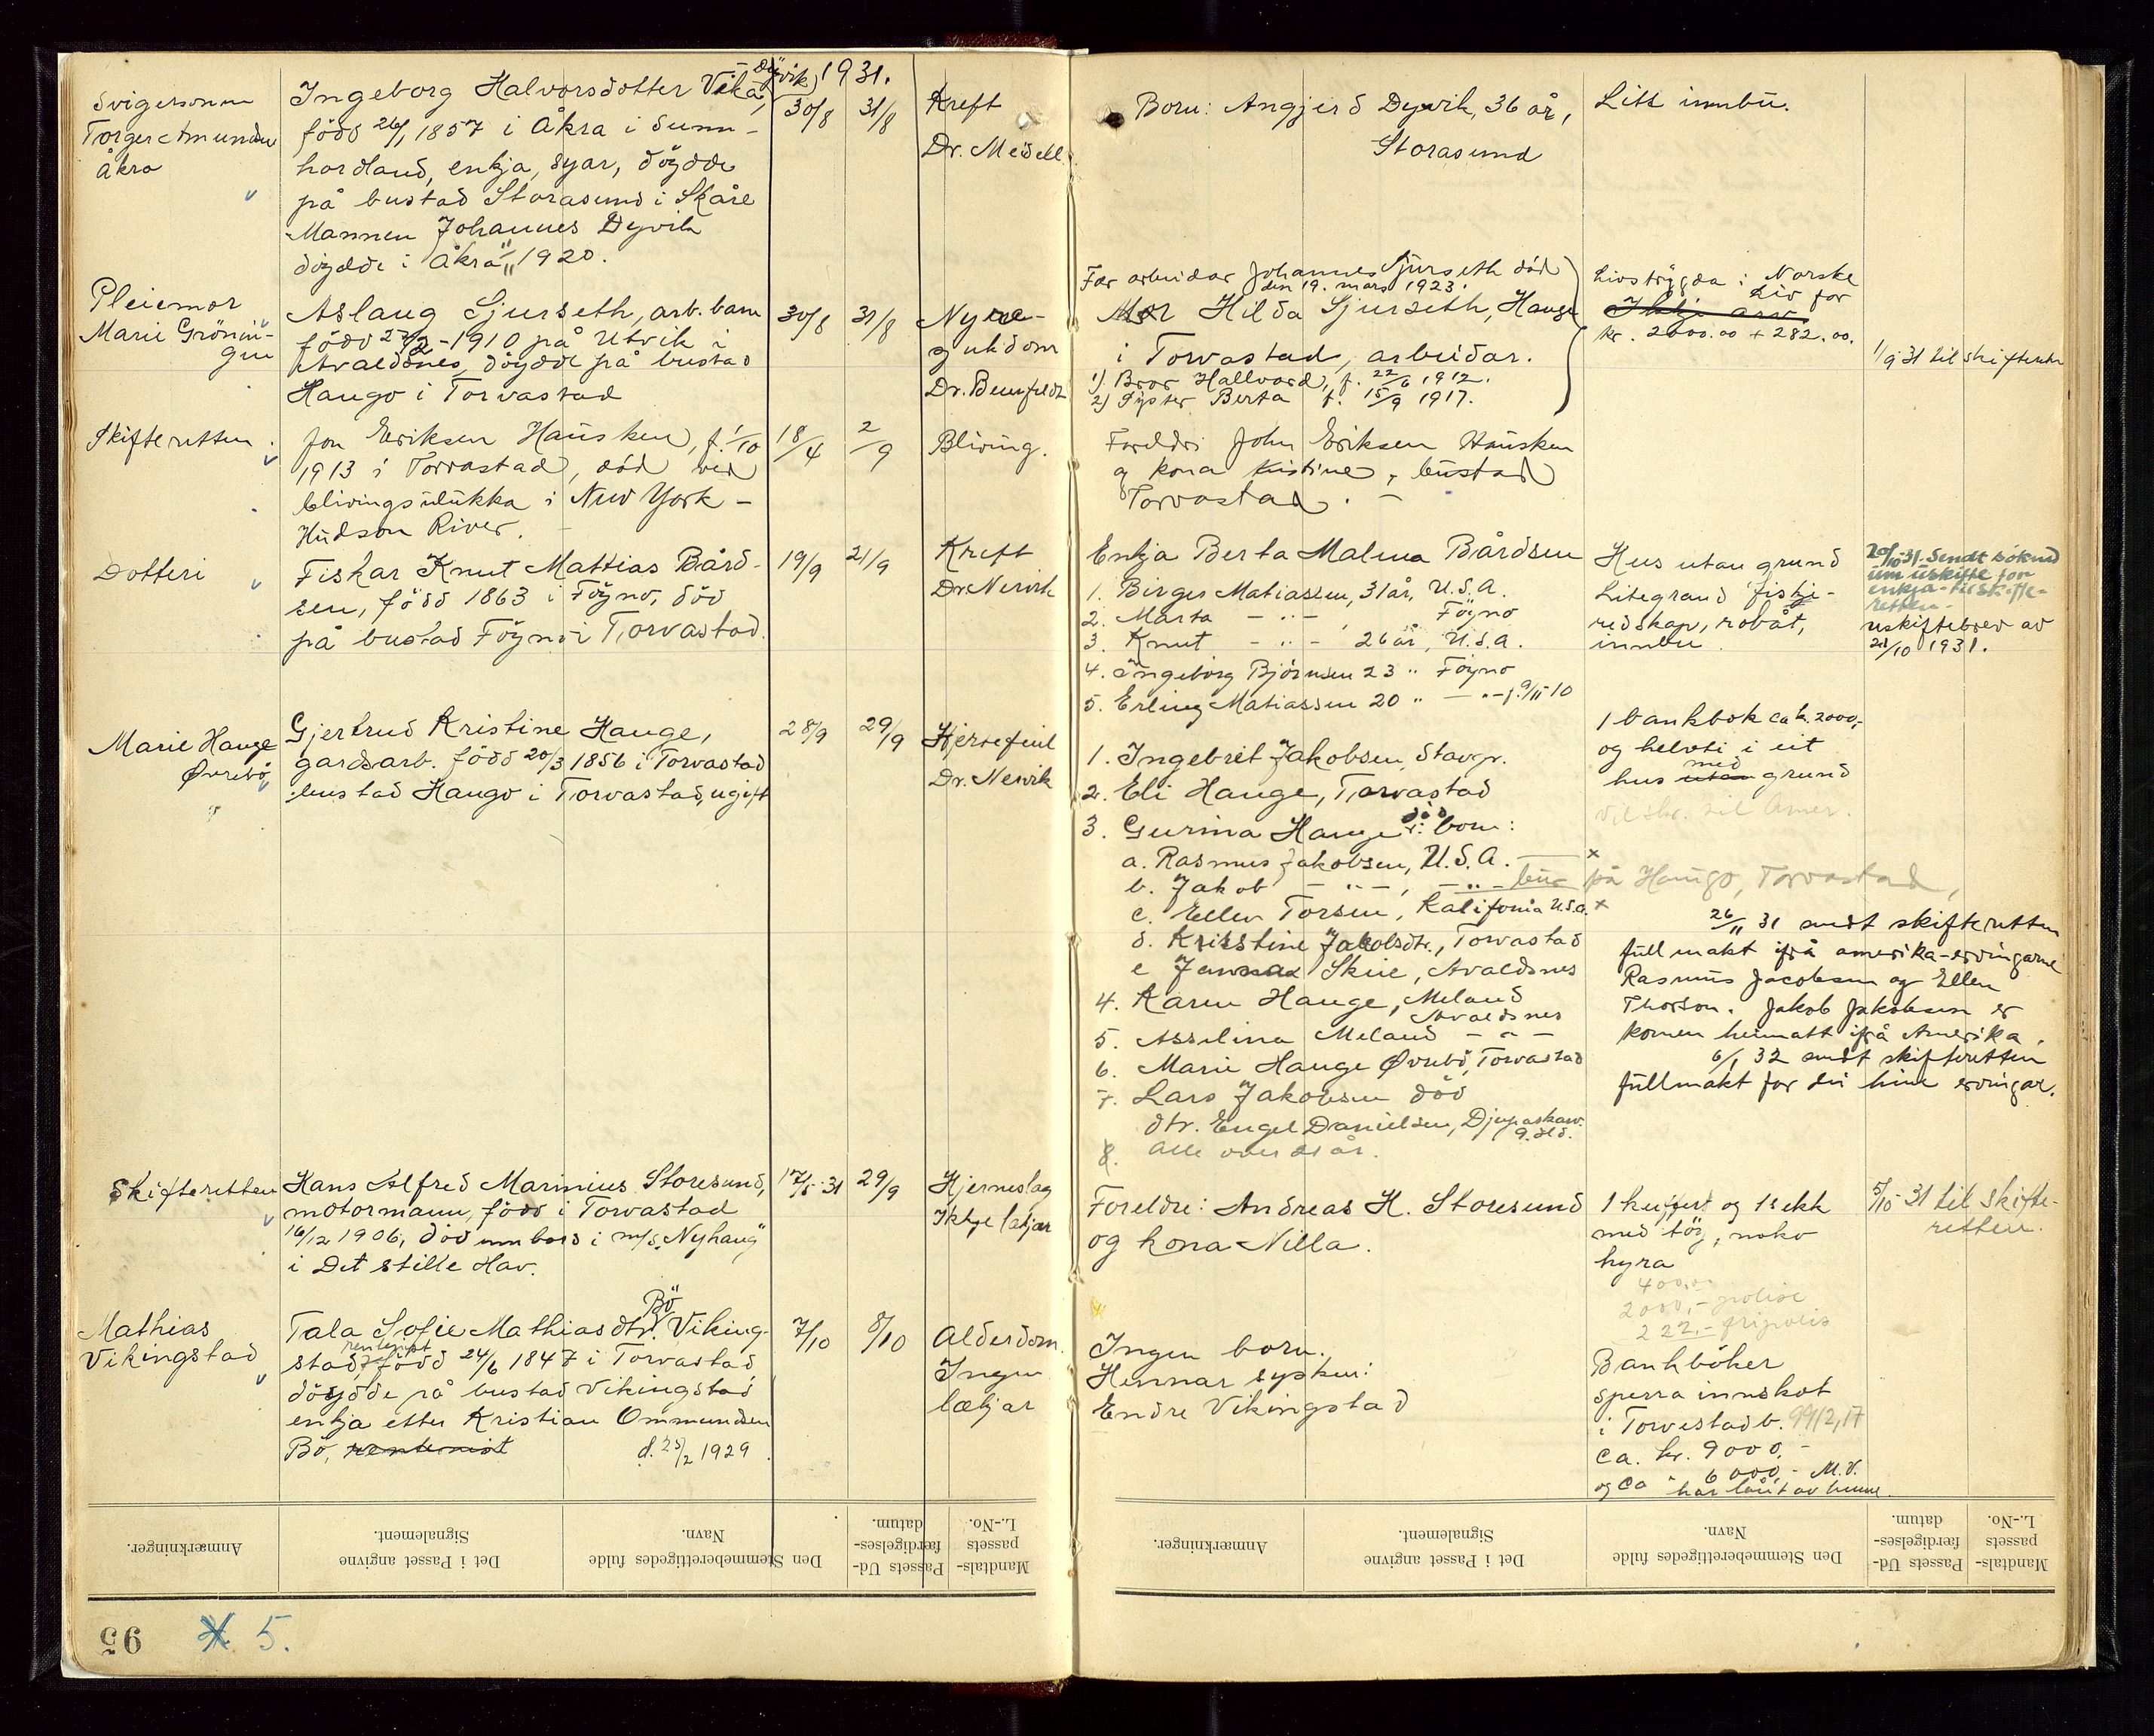 1931.
Svigersonen
Torger Amundsen
Åkra
Ingeborg Halvorsdotter Vika,
(Dyvik)
född 26/1 1857 i Åkra i Sunn-
hordland, enkja, syar, döydde
på bustad Storasund i Skåre
Mannen Johannes Dyvik
döydde i Åkra 1920.
30/8 31/8
Kreft
Dr. Meidell
Born: Angjerd Dyvik, 36 år,
Storasund
Litt innbu.
Pleiemor
Marie Grönnin-
gen
Aslaug Sjurseth, arb. barn
född 27/2-1910 på Utvik i
Avaldsnes, döydde på bustad
Haugo i Torvastad
30/8 31/8
Nyre-
sjukdom
Dr.
Far arbeidar Johannes Sjurseth död
den 19. mars 1923.
Mor Hilda Sjurseth, Haugo
i Torvastad, arbeidar.
1) Bror Hallvard, f. 22/6 1912.
2) Syster Berta f. 15/9 1917.
Livstrygda i Norske
Liv for
Ikkje arv.
kr. 2000.00 + 282.00.
1/9 31 til skifteretten
Skifteretten
Jon Eriksen Hausken, f. 1/10
1913 i Torvastad, död ved
bilvingsulukka i New York -
Hudson River.
18/4 2/9
Bliving.
Foreldri John Eriksen Hausken
og kona Kistine, bustad
Torvastad. -
Dotteri
Fiskar Knut Mattias Bård-
sen, född 1863 i Föyno, död
på bustad Föyno i Torvastad.
19/9 21/9
Kreft
Dr. Nervik
Enkja Berta Malena Bårdsen
1. Birger Matiassen, 31 år, U.S.A.
2. Marta - " - Föyno
3. Knut - " - 26 år, U.S.A.
4. Ingeborg Björnsen 23 " Föyno
5. Erling Matiassen 20 " - " - f. 9/11-10
Hus utan grund
Litegrand fiskje-
redskap, robåt,
innbu.
20/10 31. Sendt söknad
um uskifte for
enkja til skifte-
retten.
uskiftebrev av
21/10 1931.
Marie Hauge
Øvrebö
Gjertrud Kristine Hauge,
gardsarb. född 20/3 1856 i Torvastad
bustad Haugo i Torvastad, ugift
28/9 29/9
Hjertefeil
Dr. Nervik
1. Ingebret Jakobsen, Stavgr.
2. Eli Hauge, Torvastad
3. Gurina Hauge död born:
a. Rasmus Jakobsen, U.S.A. x
b. Jakob - " -, - " - bur på Haugo, Torvastad,
c. Ellen Torsen, Kalifonia U.S.A. x
d. Kristine Jakobsdtr., Torvastad
e Skeie, Avaldsnes
4. Karen Hauge, Meland
Avaldsnes
5. Asselina Meland - " -
6. Marie Hauge Øvrebö, Torvastad
7. Lars Jakobsen död
dtr. Engel Danielsen, Djupaskar.
8. alle over 21 år.
1 bankbok ca kr. 2000,-
og helvti i eit
med
hus utan grund
til Amer.
26/11 31 sendt skifteretten
fullmakt ifrå amerika-ervingarne
Rasmus Jacobsen og Ellen
Thorson. Jakob Jakobsen er
komen heimatt ifrå Amerika.
6/1 32 sendt skifteretten
fullmakt for dei hine ervingar.
Skifteretten
Hans Alfred Marinius Storesund,
motormann, född i Torvastad
16/12 1906, död um bord i m/s. "Nyhaug"
i Det stille Hav.
17/5 31 29/9
Hjerneslag
Ikkje lækjar
Foreldre: Andreas H. Storesund
og kona Nilla.
1 kuffert og 1 sekk
med töy, noko
hyra
400,-
2000,- polise
222,- fripolis
5/10 31 til skifte-
retten.
Mathias
Vikingstad
Bö
Tala Sofie Mathiasdtr. Viking-
rentenist
stad, född 24/6 1847 i Torvastad
döydde på bustad Vikingstad
enkja etter Kristian Ommundsen
Bö, rentenist d. 25/2 1929.
7/10 8/10
Alderdom.
Ingen
lækjar
Ingen born.
Hennar sysken:
Endre Vikingstad
Bankböker
sperra innskot
i Torvestad b. 9912,17
ca. kr. 9000,-
og ca " 6000,- M.V.
har lånt av henne.
Anmærkninger.
Det i Passet angivne
Signalement.
Den Stemmeberettigedes fulde
Navn.
Passets Ud-
færdigelses-
datum.
Mandtals-
passets
L.-No.
Anmærkninger.
Det i Passet angivne
Signalement.
Den Stemmeberettigedes fulde
Navn.
Passets Ud-
færdigelses-
datum.
Mandtals-
passets
L.-No.
95
5.